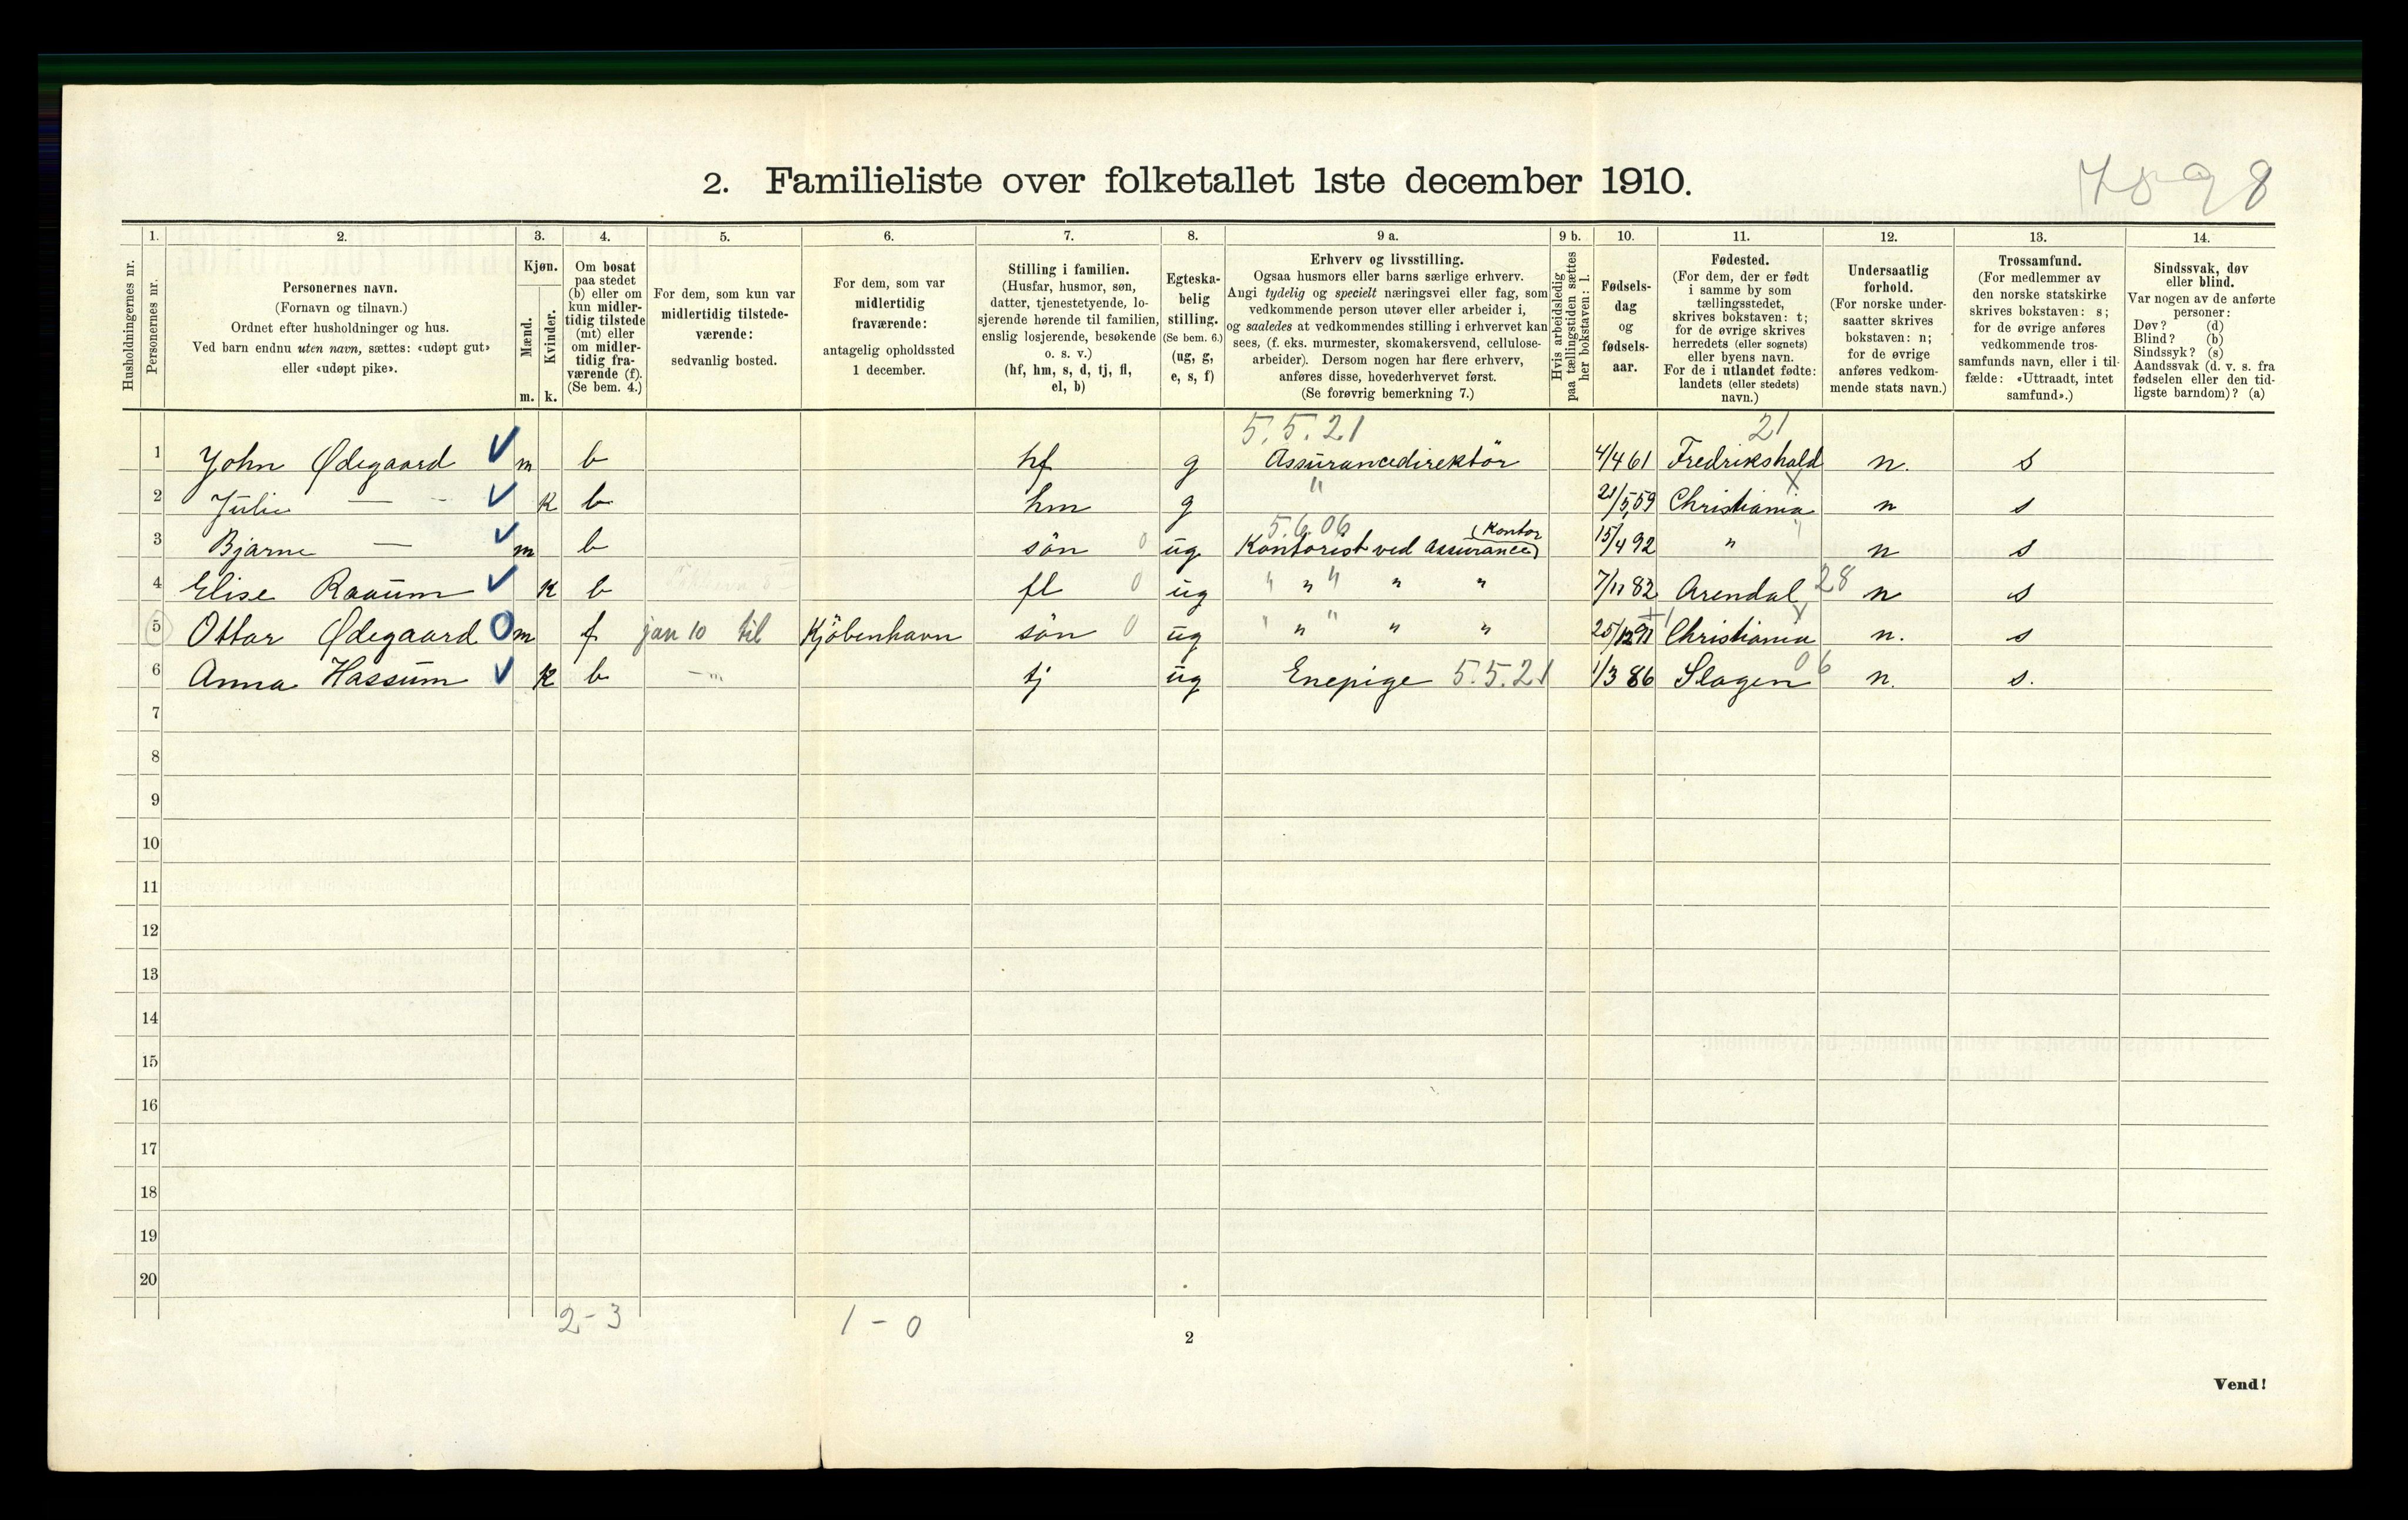 7898
2. Familieliste over folketallet 1ste december 1910.
Husholdningernes nr.
1.
Personernes nr.
2.
Personernes navn.
(Fornavn og tilnavn.)
Ordnet efter husholdninger og hus.
Ved barn endnu uten navn, sættes: «udøpt gut»
eller «udøpt pike».
3.
Kjøn.
Mænd.
Kvinder.
m. k.
4.
Om bosat
paa stedet
(b) eller om
kun midler-
tidig tilstede
(mt) eller
om midler-
tidig fra-
værende (f).
(Se bem. 4.)
5.
For dem, som kun var
midlertidig tilstede-
værende:
sedvanlig bosted.
6.
For dem, som var
midlertidig
fraværende:
antagelig opholdssted
1 december.
7.
Stilling i familien.
(Husfar, husmor, søn,
datter, tjenestetyende, lo-
sjerende hørende til familien,
enslig losjerende, besøkende
o. s. v.)
(hf, hm, s, d, tj, fl,
el, b)
8.
Egteska-
belig
stilling.
(Se bem. 6.)
(ug, g,
e, s, f)
9 a.
Erhverv og livsstilling.
Ogsaa husmors eller barns særlige erhverv.
Angi tydelig og specielt næringsvei eller fag, som
vedkommende person utøver eller arbeider i,
og saaledes at vedkommendes stilling i erhvervet kan
sees, (f. eks. murmester, skomakersvend, cellulose-
arbeider). Dersom nogen har flere erhverv,
anføres disse, hovederhvervet først.
(Se forøvrig bemerkning 7.)
9 b.
Hvis arbeidsledig
paa tællingstiden sættes
her bokstaven: l.
10.
Fødsels-
dag
og
fødsels-
aar.
11.
Fødested.
(For dem, der er født
i samme by som
tællingsstedet,
skrives bokstaven: t;
for de øvrige skrives
herredets (eller sognets)
eller byens navn.
For de i utlandet fødte:
landets (eller stedets)
navn.)
12.
Undersaatlig
forhold.
(For norske under-
saatter skrives
bokstaven: n;
for de øvrige
anføres vedkom-
mende stats navn.)
13.
Trossamfund.
(For medlemmer av
den norske statskirke
skrives bokstaven: s;
for de øvrige anføres
vedkommende tros-
samfunds navn, eller i til-
fælde: «Uttraadt, intet
samfund».)
14.
Sindssvak, døv
eller blind.
Var nogen av de anførte
personer:
Døv? (d)
Blind? (b)
Sindssyk? (s)
Aandssvak (d. v. s. fra
fødselen eller den tid-
ligste barndom)? (a)
5.5.21 21
1 John Ødegaard m b hf g Assurancedirektör 4/4 61 Fredrikshald n. s
2 Julie — k b hm g " 21/5 59 Christiania n s
5.6.06 (Kontor
3 Bjarne — m b sön 0 ug Kontorist ved Assurance) 15/4 92 " n s
4 Elise Raaum k b fl 0 ug " " " " 7/11 82 Arendal 28 n s
5 Ottar Ødegaard m f jan 10 til Kjöbenhavn sön 0 ug " " " " 25/12 91 Christiania n. s
6 Anna Hassum k b tj ug Enepige 5.5.21 1/3 86 Slagen 06 n. s.
7
8
9
10
11
12
13
14
15
16
17
18
19
20
2-3 1-0
2
Vend!